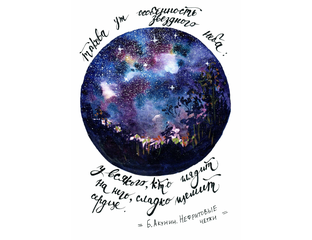 такова уж особенность
звездного неба:
у всякого, кто глядит
на него, сладко щемит
сердце.
Б. Акунин. Нефритовые
четки